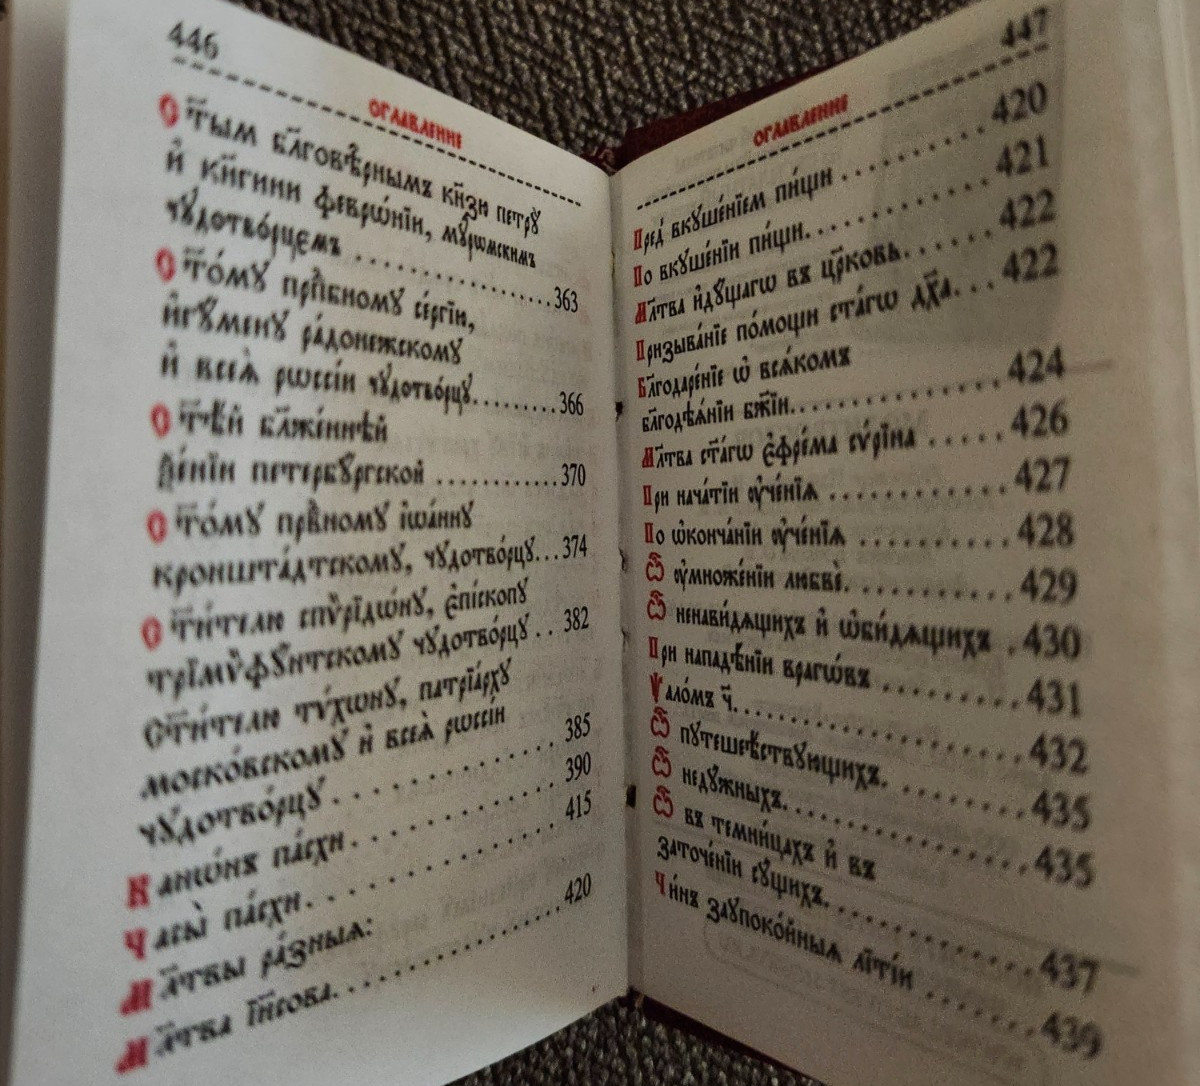 446
ѻглавленїе
Ѻ с҃тым бл҃говѣ́рнымъ кн҃зю петрꙋ̀
и҆ кн҃гини феврѡ́нїи, мꙋ́рѡмскимъ
чꙋдотво́рцємъ ............... 363
Ѻ с҃то́мꙋ прпⷣбномꙋ се́ргїю,
и҆гꙋ́менꙋ ра́донежскомꙋ
и҆ всеѧ̀ рѡссі́и чꙋдотво́рцꙋ......... 366
Ѻ с҃тѣ́й бл҃же́ннѣй
ѯе́нїи петербꙋ́ргской ............ 370
Ѻ с҃то́мꙋ првⷣномꙋ і҆ѡа́ннꙋ
кроншта́дтскомꙋ, чꙋдотво́рцꙋ... 374
Ѻ с҃ти́телю спѷрїдѡ́нꙋ, є҆пі́скопꙋ
трїмѷфꙋ́нтскомꙋ чꙋдотво́рцꙋ . . 382
Ст҃и́телю тѵ́хѡнꙋ, патрїа́рхꙋ
моско́вскомꙋ и҆ всеѧ̀ рѡссі́и
чꙋдотво́рцꙋ ................ 385
Канѡ́нъ па́схи................ 390
Часы̀ па́схи................ 415
Мл҃твы ра́зныѧ:
Мл҃тва і҆и҃сова................ 420
447
ѻглавленїе
Пред̾ вкꙋше́нїем пи́щи .......... 420
По вкꙋше́нїи пи́щи............ 421
Мл҃тва и҆дꙋ́щагѡ въ цр҃ковь....... 422
Призыва́нїе по́мощи ст҃а́гѡ дх҃а... 422
Бл҃годаре́нїе ѡ҆ всѧ́комъ
бл҃годѣѧ́нїи бж҃їи.............. 424
Мл҃тва ст҃а́гѡ є҆фре́ма сѵ́рїна ..... 426
При нача́тїи ᲂу҆че́нїѧ ........... 427
По ѡ҆конча́нїи ᲂу҆че́нїѧ .......... 428
Ѽ ᲂу҆множе́нїи любвѐ. .......... 429
Ѽ ненави́дѧщихъ и҆ ѡ҆би́дѧщихъ . 430
При нападе́нїи врагѡ́въ ......... 431
Ѱало́мъ ч҃................. 432
Ѽ пꙋтеше́ствꙋющихъ. ........ 435
Ѽ недꙋ́жныхъ................ 435
Ѽ въ темни́цахъ и҆ въ
заточе́нїи сꙋ́щихъ............. 437
Чи́нъ заꙋпоко́йныѧ лїті́и ....... 439